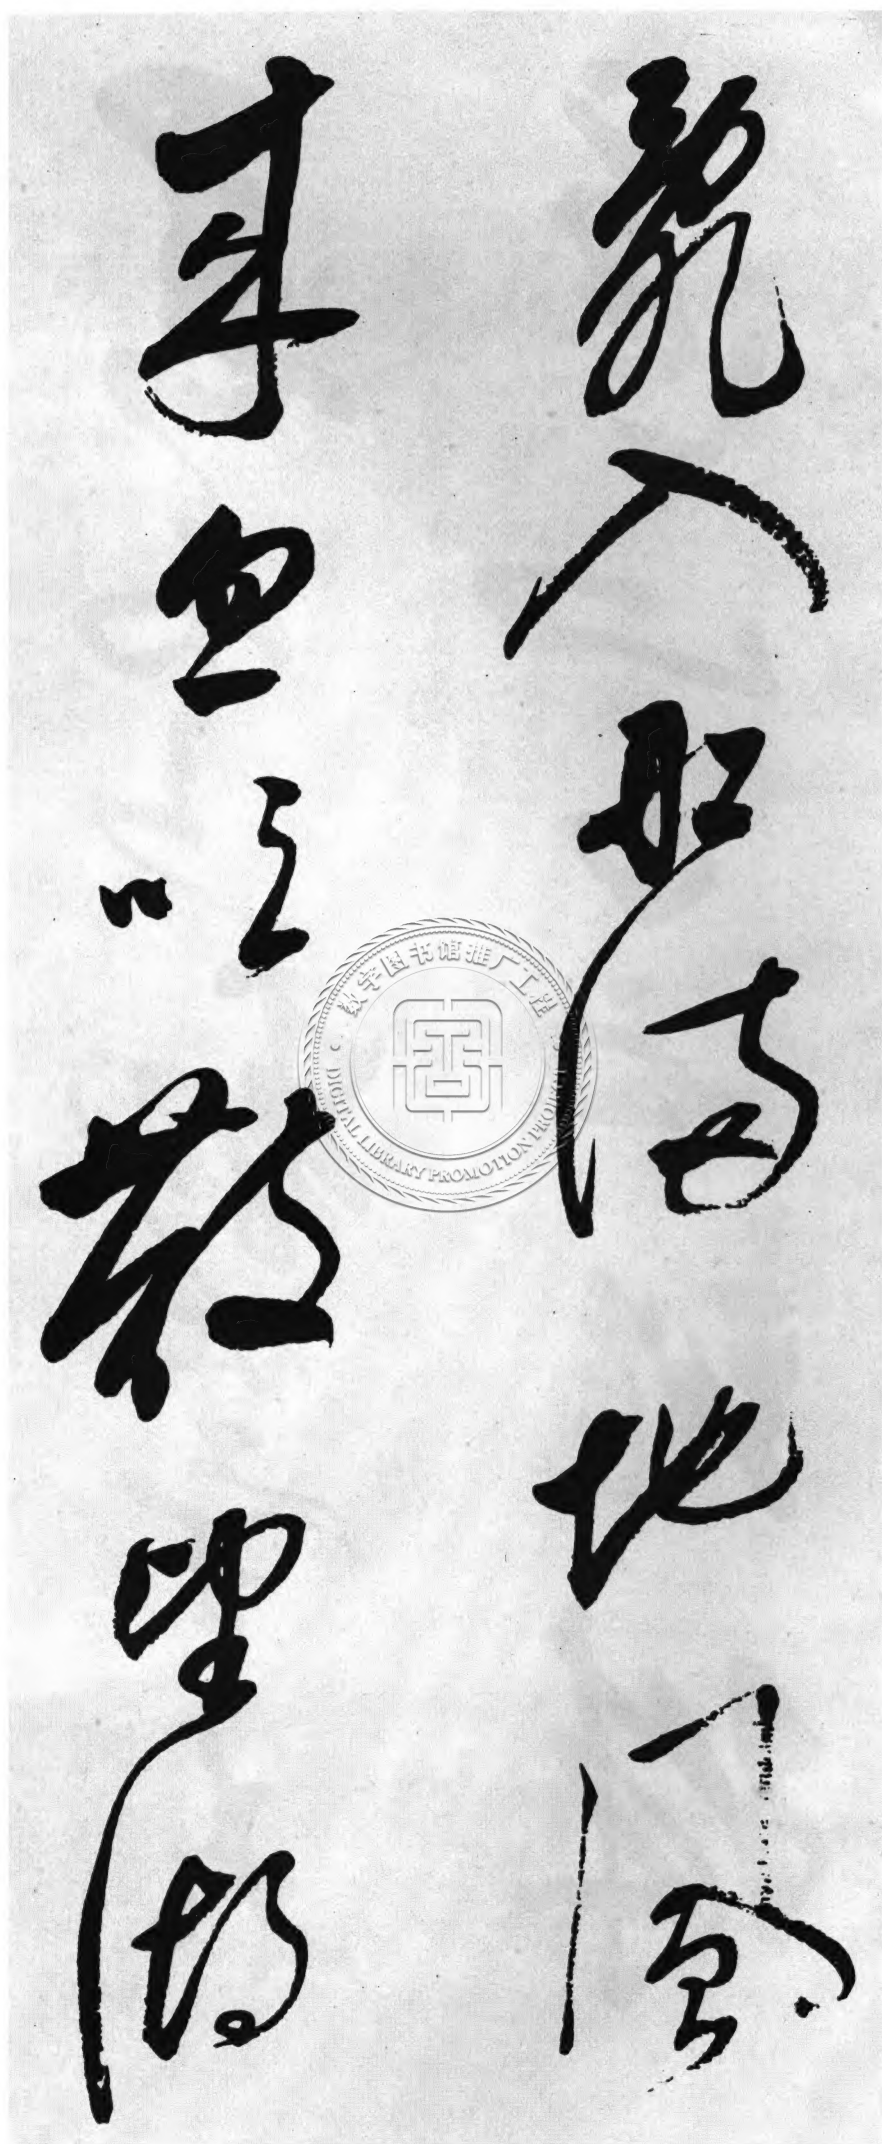 亂入船卷地風
来忽吹散望湖
数字图书馆推广工程
DIGITAL LIBRARY PROMOTION PROJECT